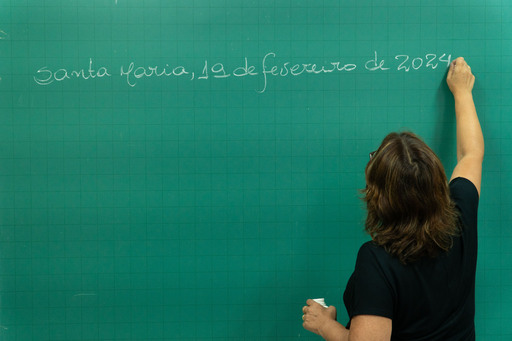 Santa Maria, 19 de fevereiro de 2024